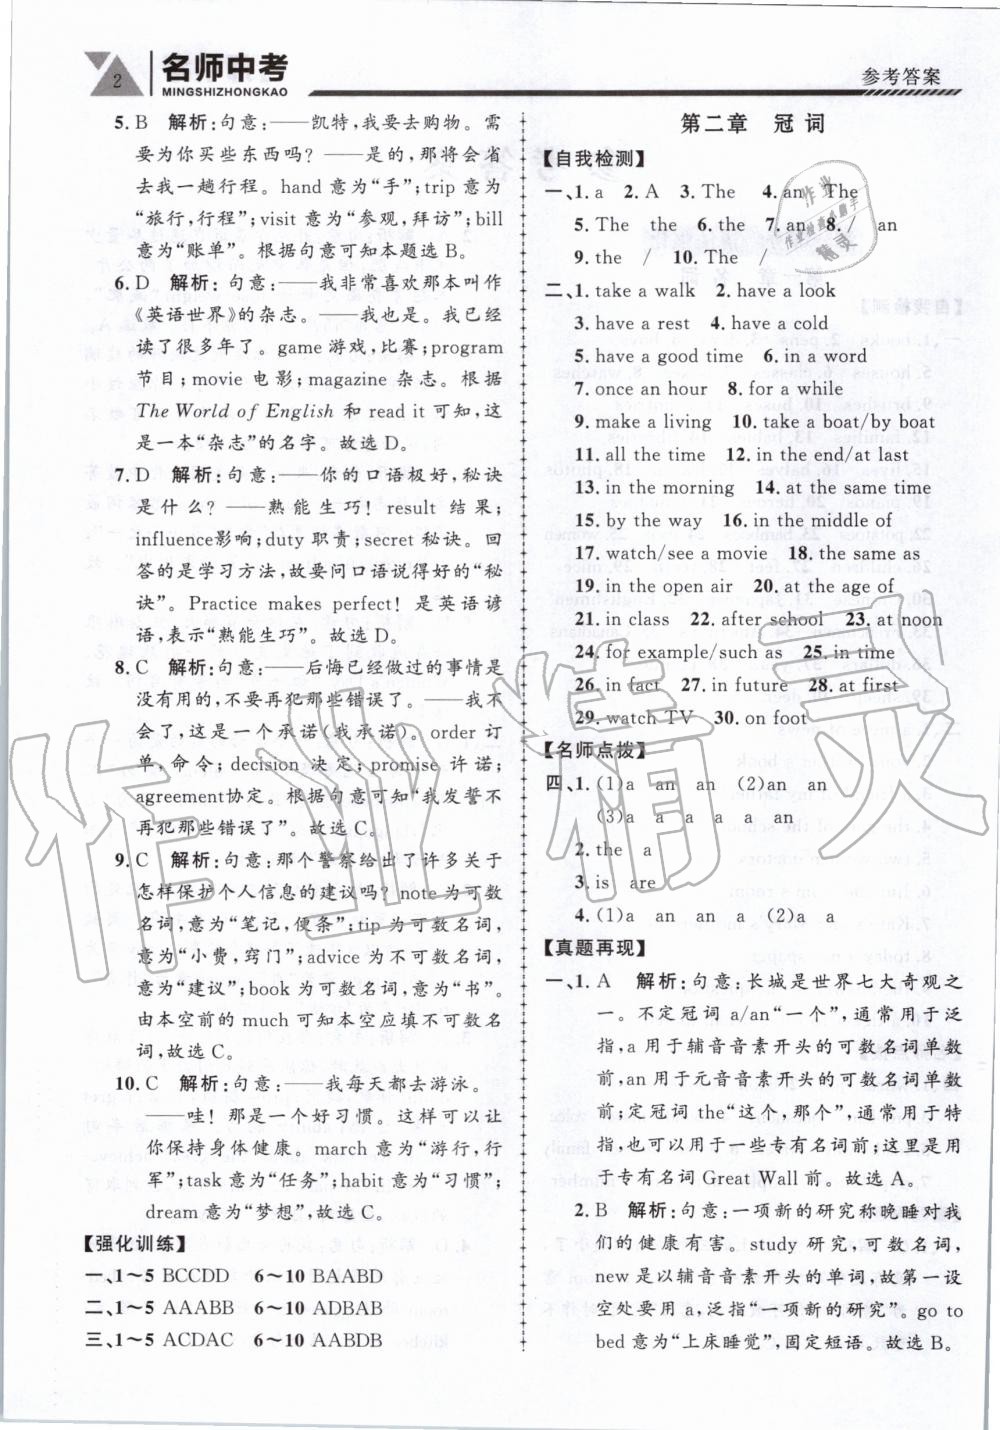 2
名师中考
MINGSHIZHONGKAO
参考答案
5. B 解析:句意:——凯特,我要去购物。需
要为你买些东西吗? ——是的,那将会省
去我一趟行程。hand 意为“手”;trip 意为
“旅行,行程”;visit 意为“参观,拜访”;bill
意为“账单”。根据句意可知本题选 B。
6. D 解析:句意:——我非常喜欢那本叫作
《英语世界》的杂志。——我也是。我已经
读了很多年了。game 游戏,比赛;program
节目;movie 电影;magazine 杂志。根据
The World of English 和 read it 可知,这
是一本“杂志”的名字。故选 D。
7. D 解析:句意:——你的口语极好,秘诀
是什么? ——熟能生巧! result 结果;
influence影响;duty 职责;secret 秘诀。回
答的是学习方法,故要问口语说得好的“秘
诀”。Practice makes perfect! 是英语谚
语,表示“熟能生巧”。故选 D。
8. C 解析:句意:——后悔已经做过的事情是
没有用的,不要再犯那些错误了。——我不
会了,这是一个承诺(我承诺)。order 订
单,命令;decision 决定;promise 许诺;
agreement协定。根据句意可知“我发誓不
再犯那些错误了”。故选 C。
9. C 解析:句意:那个警察给出了许多关于
怎样保护个人信息的建议吗? note 为可数
名词,意为“笔记,便条”;tip 为可数名词,
意为“小费,窍门”;advice 为不可数名词,
意为“建议”;book 为可数名词,意为“书”。
由本空前的 much 可知本空应填不可数名
词,故选 C。
10. C 解析:句意:——我每天都去游泳。
——哇!那是一个好习惯。这样可以让
你保持身体健康。march 意为“游行,行
军”;task 意为“任务”;habit 意为“习惯”;
dream 意为“梦想”,故选 C。
【强化训练】
一、1～5 BCCDD 6～10 BAABD
二、1～5 AAABB 6～10 ADBAB
三、1～5 ACDAC 6～10 AABDB
第二章 冠词
【自我检测】
一、1. a 2. A 3. The 4. an The
5. The the 6. the 7. an 8. / an
9. the / 10. The /
二、1. take a walk 2. have a look
3. have a rest 4. have a cold
5. have a good time 6. in a word
7. once an hour 8. for a while
9. make a living 10. take a boat/by boat
11. all the time 12. in the end/at last
13. in the morning 14. at the same time
15. by the way 16. in the middle of
17. watch/see a movie 18. the same as
19. in the open air 20. at the age of
21. in class 22. after school 23. at noon
24. for example/such as 25. in time
26. in fact 27. in future 28. at first
29. watch TV 30. on foot
【名师点拨】
四、1. (1)a an an (2)an an
(3)a a a a an
2. the a
3. is are
4. (1)a an an a (2)a a
【真题再现】
一、1. A 解析:句意:长城是世界七大奇观之
一。不定冠词 a/an“一个”,通常用于泛
指,a 用于辅音音素开头的可数名词单数
前,an 用于元音音素开头的可数名词单数
前;定冠词 the“这个,那个”,通常用于特
指,也可以用于一些专有名词前;这里是用
于专有名词 Great Wall 前。故选 A。
2. B 解析:句意:一项新的研究称晚睡对我
们的健康有害。study 研究,可数名词,
new是以辅音音素开头的单词,故第一设
空处要用 a,泛指“一项新的研究”。go to
bed 意为“上床睡觉”,固定短语。故选 B。
作业
作业检查小助手
精灵
作业精灵